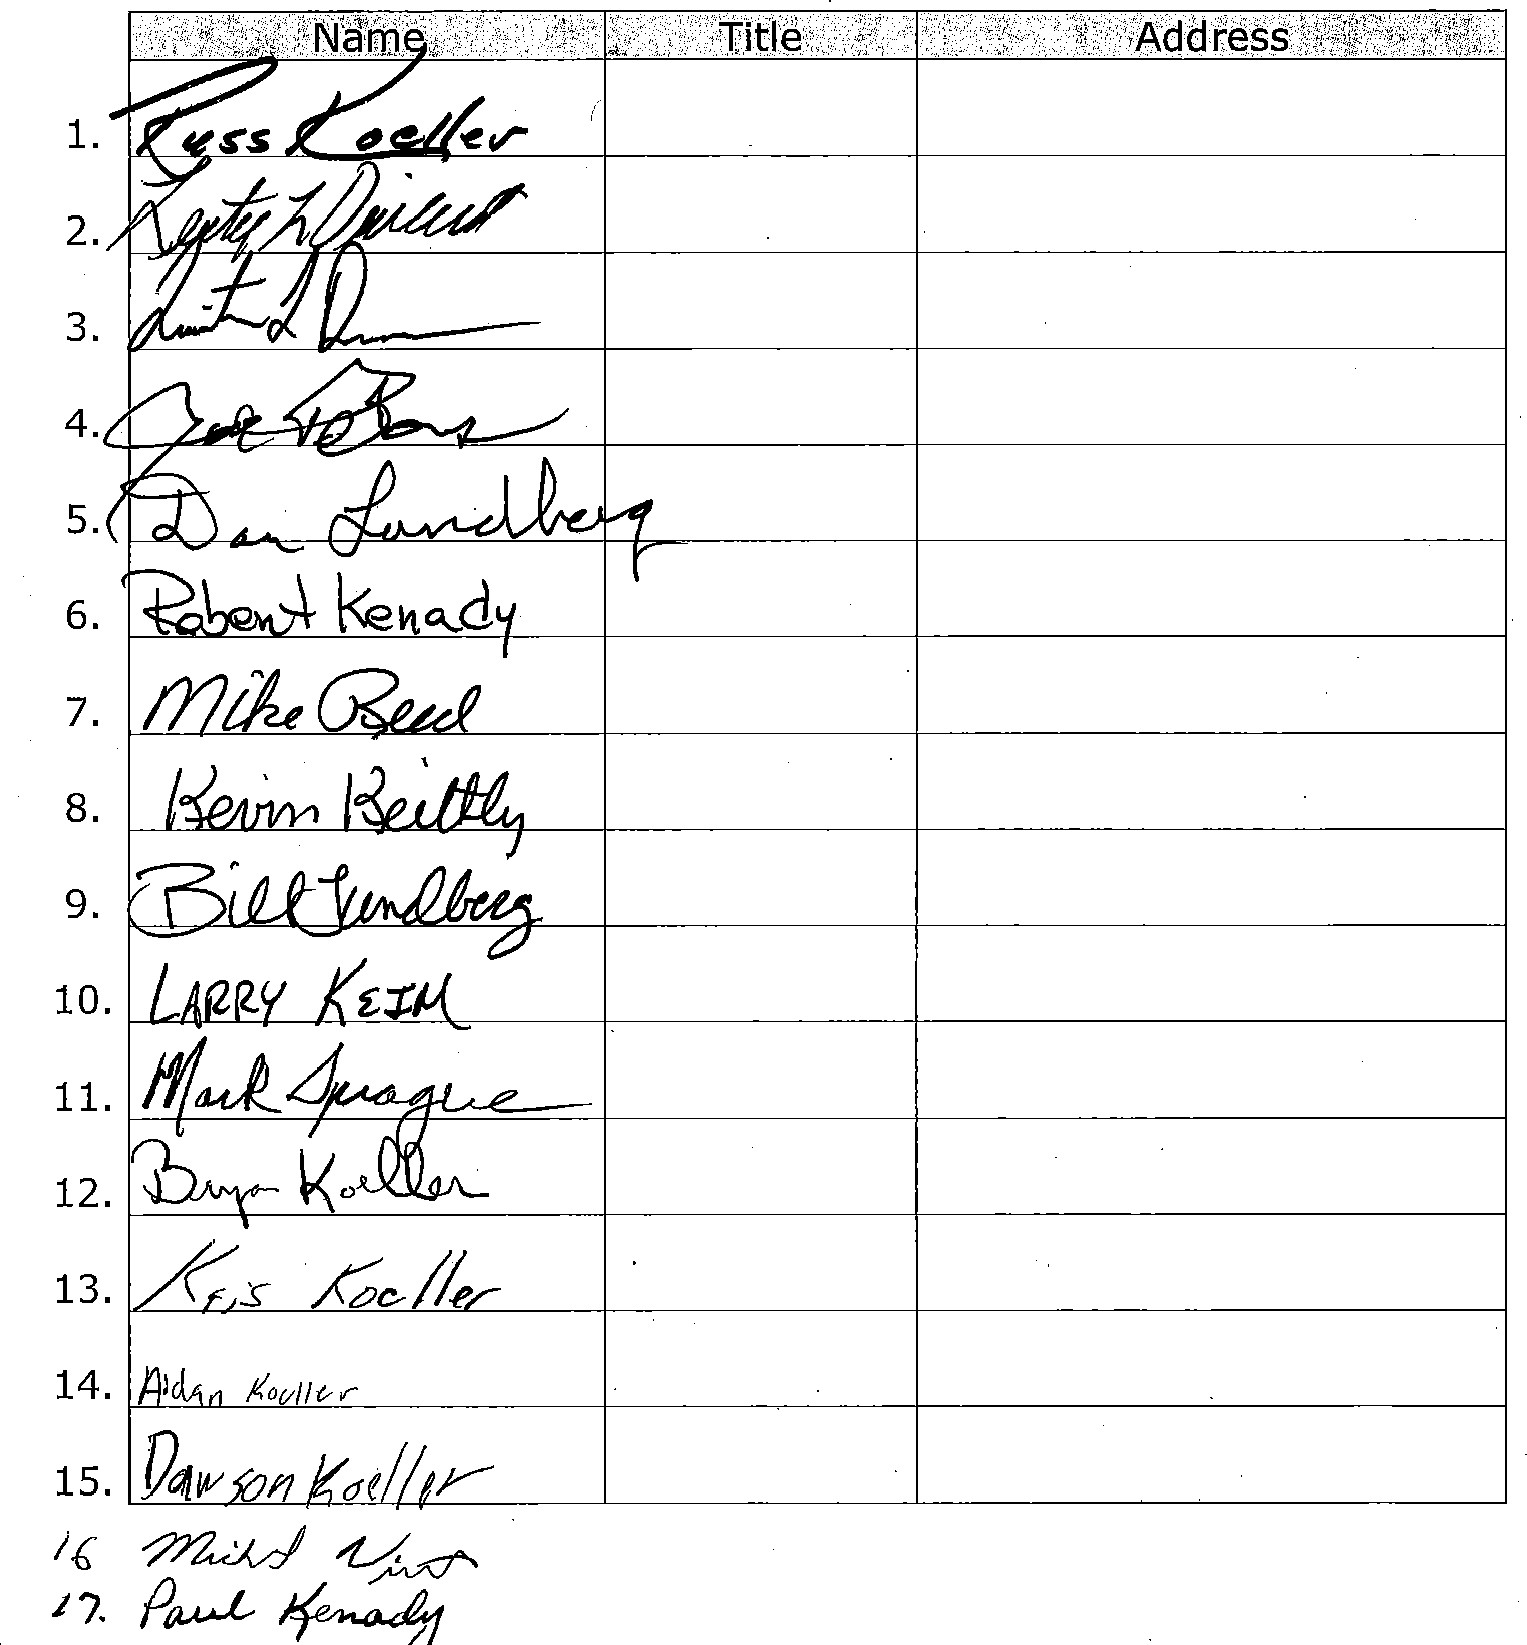 Name Title Address
1. Russ Koeller
2. L
3. L D
4. Joe
5. Dan Lundberg
6. Robert Kenady
7. Mike Reed
8. Kevin Keithly
9. Bill Lundberg
10. LARRY KEIM
11. Mark Sprague
12. Bryan Koeller
13. Kris Koeller
14. Aidan Koeller
15. Dawson Koeller
16
17. Paul Kenady